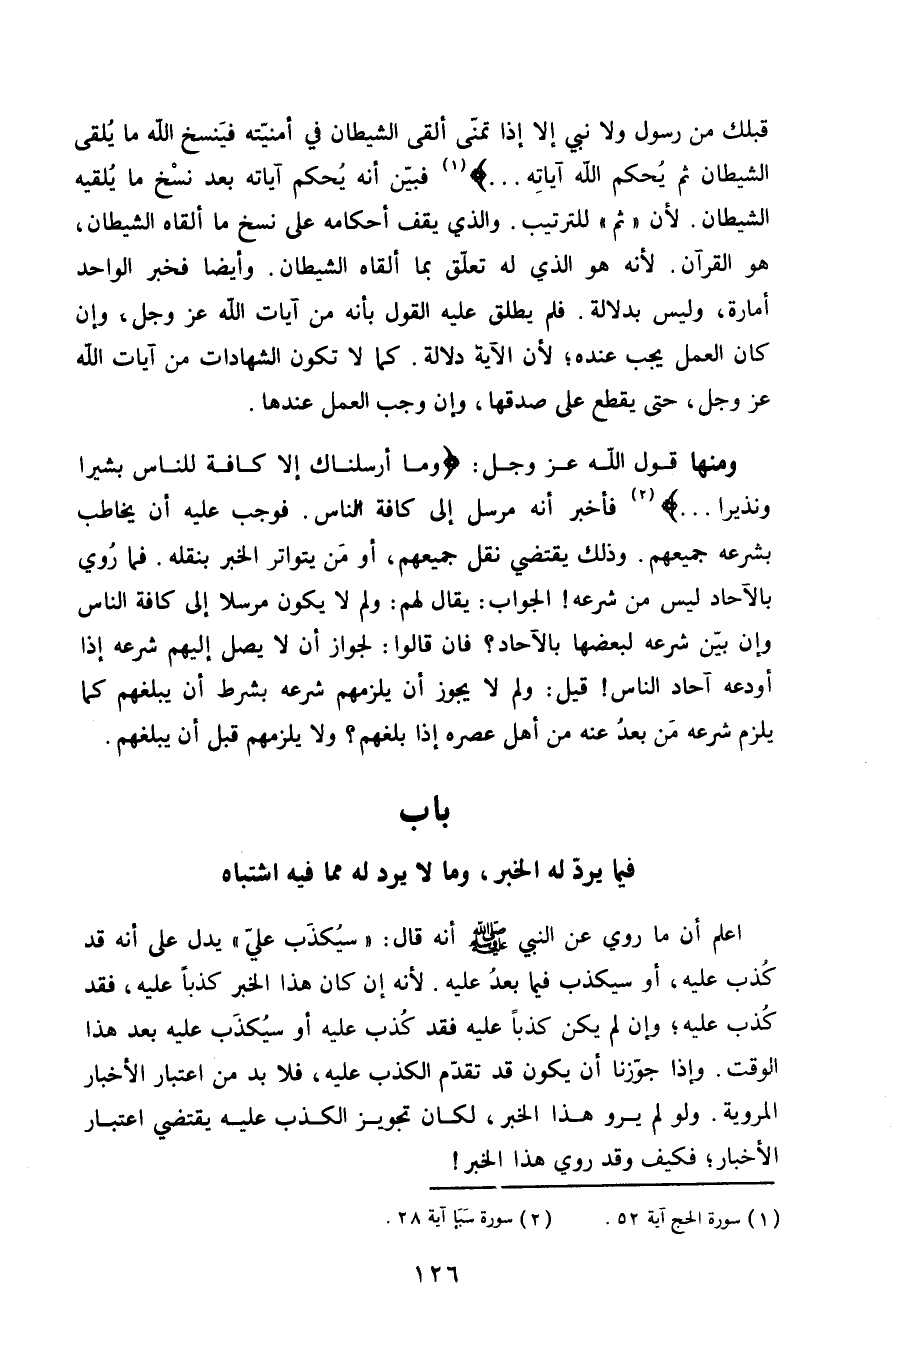 قبلك من رسول ولا نبي إلا إذا تمنّى ألقى الشيطان في أمنيّته فيَنسخ الله ما يُلقى
الشيطان ثم يُحكم الله آياتِه ...﴾(١) فبيّن أنه يُحكم آياته بعد نسْخ ما يُلقيه
الشيطان. لأن «ثم» للترتيب. والذي يقف أحكامه على نسخ ما ألقاه الشيطان،
هو القرآن. لأنه هو الذي له تعلّق بما ألقاه الشيطان. وأيضا فخبر الواحد
أمارة، وليس بدلالة. فلم يطلق عليه القول بأنه من آيات الله عز وجل، وإن
كان العمل يجب عنده؛ لأن الآية دلالة. كما لا تكون الشهادات من آيات الله
عز وجل، حتى يقطع على صدقها، وإن وجب العمل عندها.
ومنها قول الله عز وجل: ﴿وما أرسلناك إلا كافة للناس بشيرا
ونذيرا ...﴾(٢) فأخبر أنه مرسل إلى كافة الناس. فوجب عليه أن يخاطب
بشرعه جميعهم. وذلك يقتضي نقل جميعهم، أو مَن يتواتر الخبر بنقله. فما رُوي
بالآحاد ليس من شرعه! الجواب: يقال لهم: ولم لا يكون مرسلا إلى كافة الناس
وإن بيّن شرعه لبعضها بالآحاد؟ فان قالوا: لجواز أن لا يصل إليهم شرعه إذا
أودعه آحاد الناس! قيل: ولم لا يجوز أن يلزمهم شرعه بشرط أن يبلغهم كما
يلزم شرعه مَن بعدُ عنه من أهل عصره إذا بلغهم؟ ولا يلزمهم قبل أن يبلغهم.
باب
فيما يردّ له الخبر، وما لا يرد له مما فيه اشتباه
اعلم أن ما روي عن النبي ﷺ أنه قال: «سيُكذَب عليّ» يدل على أنه قد
كُذب عليه، أو سيكذب فيما بعدُ عليه. لأنه إن كان هذا الخبر كذباً عليه، فقد
كُذب عليه؛ وإن لم يكن كذباً عليه فقد كُذب عليه أو سيُكذَب عليه بعد هذا
الوقت. وإذا جوّزنا أن يكون قد تقدّم الكذب عليه، فلا بد من اعتبار الأخبار
المروية. ولو لم يرو هذا الخبر، لكان تجويز الكذب عليه يقتضي اعتبار
الأخبار؛ فكيف وقد روي هذا الخبر!
(١) سورة الحج آية ٥٢. (٢) سورة سَبَإ آية ٢٨.
١٢٦